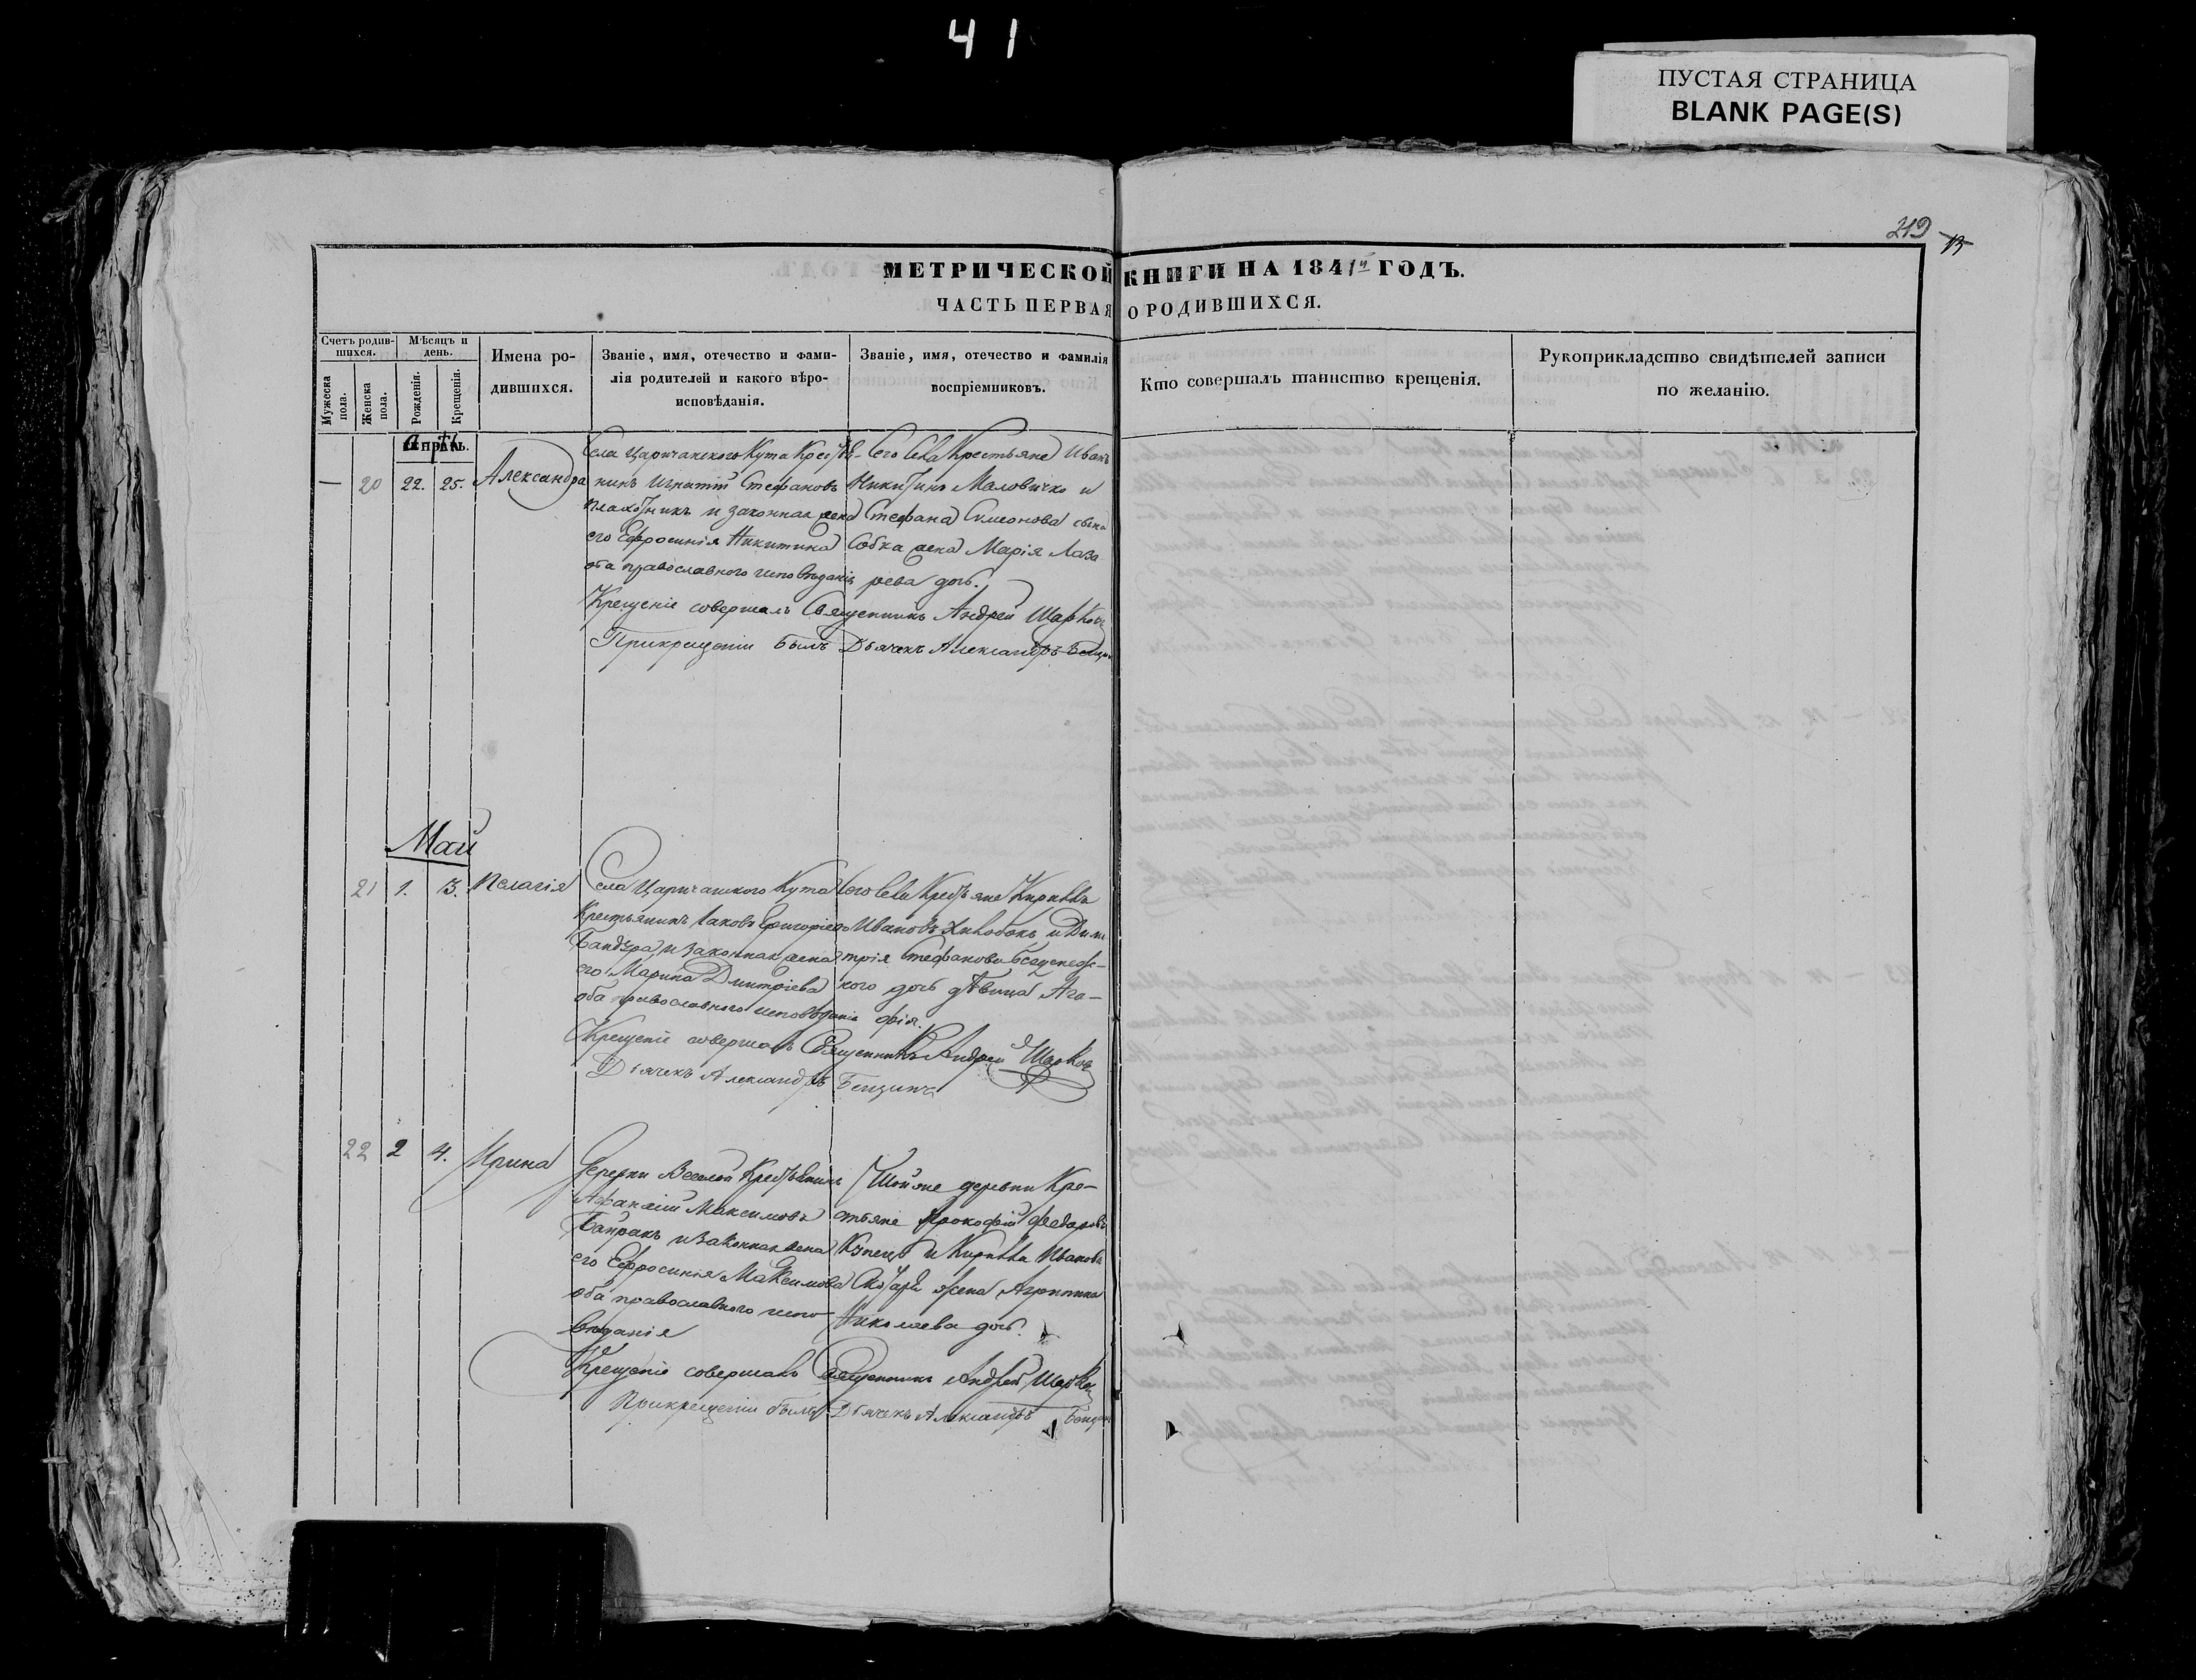 41
ПУСТАЯ СТРАНИЦА
BLANK PAGE(S)
219
13
МЕТРИЧЕСКОЙ КНИГИ НА 1841й ГОДЪ.
ЧАСТЬ ПЕРВАЯ О РОДИВШИХСЯ.
Счетъ родившихся.
Мужеска пола.
Женска пола.
Мѣсяцъ и день.
Рожденія.
Крещенія.
Имена родившихся.
Званіе, имя, отечество и фамилія родителей и какого вѣроисповѣданія.
Званіе, имя, отечество и фамилія воспріемниковъ.
Кто совершалъ таинство крещенія.
Рукоприкладство свидѣтелей записи по желанію.
Апрѣль.
— 20 22. 25. Александра
Села Царичанского Кута Крестья-
нинъ Игнатій Стефановъ
Плахотникъ и законная жена
его Ефросинія Никитина
оба православного исповѣданія
Сего села Крестьяне Иванъ
Никитинъ Маловичко и
Стефана Симеонова сына
Собка жена Марія Лаза
рева дочь.
Крещеніе совершалъ Священникъ Андрей
При крещеніи былъ Дьячекъ Александръ
Май
21 1. 3. Пелагія
Села Царичанского Кута
Крестьянинъ Іаковъ Григоріевъ
Бандура и законная жена
его Марина Дмитріева
оба православного исповѣданія
Сего села Крестьяне Кириллъ
Ивановъ и Дим
трія Стефанова
кого дочь дѣвица Ага-
фія.
Крещеніе совершалъ Священникъ Андрей
Дьячекъ Александръ
22 2 4. Ирина
Деревни Веселой Крестьянинъ
Афанасій Максимовъ
Байракъ и законная жена
его Ефросинія Максимова
оба православного испо-
вѣданія
Той же деревни Кре-
стьяне Прокофій Федоровъ
и Кирилла Иванова
жена Агрипина
Николаева дочь.
Крещеніе совершалъ Священникъ Андрей
При крещеніи былъ Дьячекъ Александръ